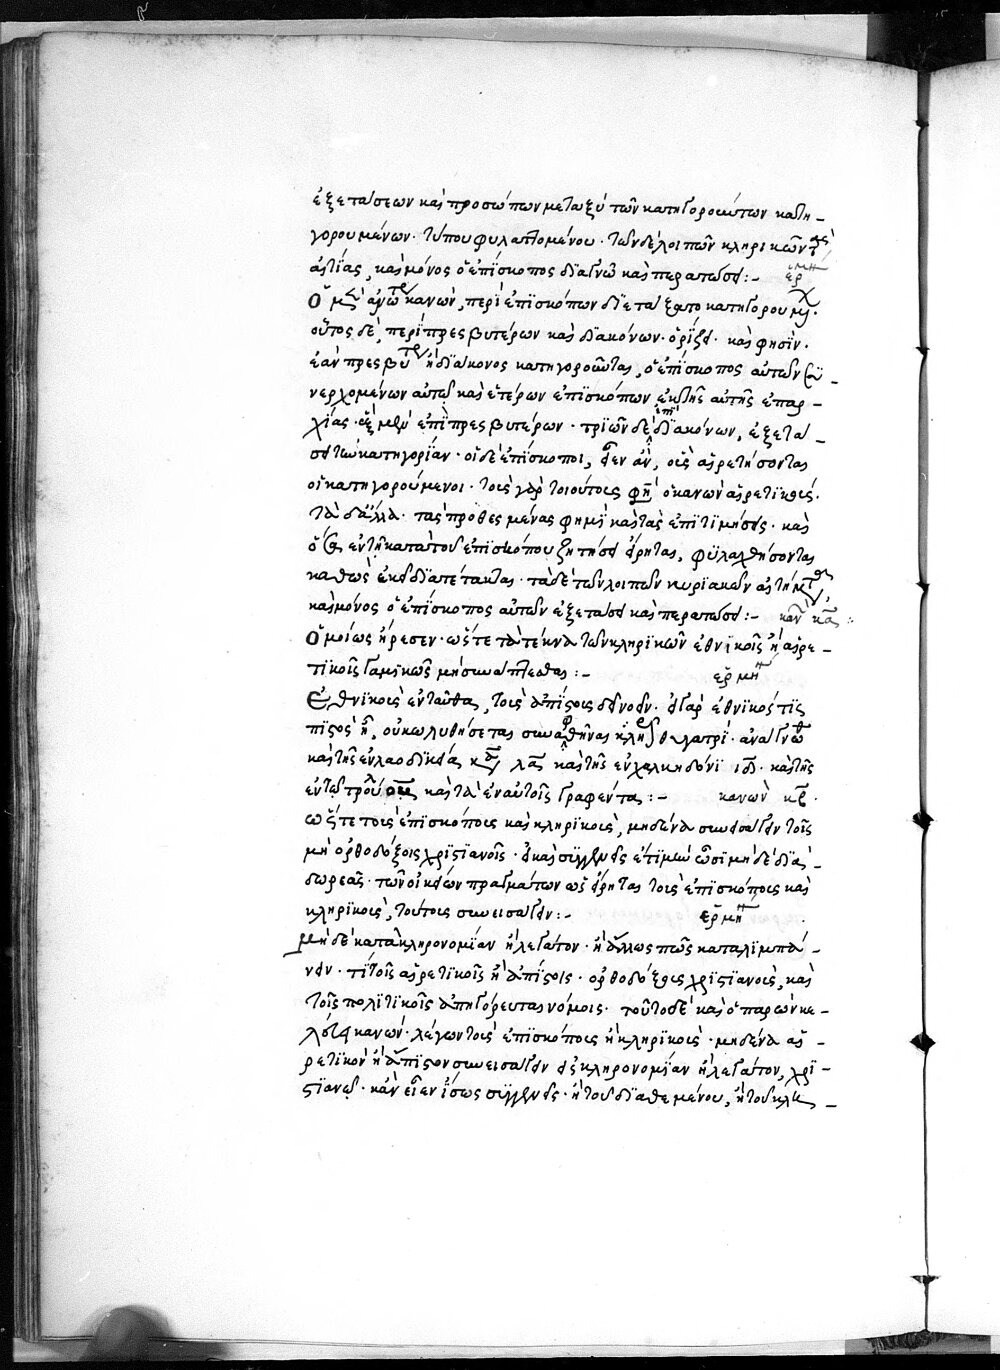 ἐξετάσεων καὶ προσώπων μεταξὺ τῶν κατηγορούντων κατη_
γορουμένων· τύπου φυλαττομένου· τῶν δὲ λοιπῶν κληρικῶν τὰς
αἰτίας, καὶ μόνος ὁ ἐπίσκοπος διαγνῷ καὶ περατώσει:~ ἑρμη
Ὁ μὲν ἄνω κανὼν, περὶ ἐπισκόπων διετάξατο κατηγορουμ
οὗτος δὲ, περὶ πρεσβυτέρων καὶ διακόνων ὁρίζει· καὶ φησὶν·
ἐὰν πρεσβύτ ἢ διάκονος κατηγοροῦνται, ὁ ἐπίσκοπος αὐτῶν συ_
νερχομένων αὐτῷ καὶ ἑτέρων ἐπισκόπων ἐκ τῆς αὐτῆς ἐπαρ_
χίας· ἓξ μὲν ἐπὶ πρεσβυτέρων· τριῶν δὲ ἐπὶ διακόνων, ἐξετά_
σει τὴν κατηγορίαν· οἱ δὲ ἐπίσκοποι, εἶεν ἂν, οὓς αἱρετήσονται
οἱ κατηγορούμενοι· τοῖς γὰρ τοιούτοις φη ὁ κανὼν αἱρετικοῖς·
τὰ δ' ἄλλα· τὰς προθεσμίας φημὶ καὶ τὰς ἐπιτιμήσεις· καὶ
ὅσα ἐν τῇ κατὰ τοῦ ἐπισκόπου ζητήσει εἴρηται, φυλαχθήσονται
καθὼς ἐκεῖ διατέτακται· τὰ δὲ τῶν λοιπῶν κυριακῶν αἰτήματα
καὶ μόνος ὁ ἐπίσκοπος αὐτῶν ἐξετάσει καὶ περατώσει:~ κανὼν κα:
Ὁμοίως ἤρεσεν· ὥστε τὰ τέκνα τῶν κληρικῶν ἐθνικοῖς ἢ αἱρε_
τικοῖς γαμικῶς μὴ συνάπτεσθαι:~ ἑρμη
Ἐθνικοὺς ἐνταῦθα, τοὺς ἀπίστους δεῖ νοεῖν· εἰ γὰρ ἐθνικός τις
πιστὸς ᾖ, οὐ κωλυθήσεται συναφθῆναι κληρ θυγατρί· ἀνάγνωθ
καὶ τῆς ἐν λαοδικείᾳ κ λα καὶ τῆς ἐν χαλκηδόνι ιδ· καὶ τῆς
ἐν τῷ τρούλ οβ καὶ τὰ ἐν αὐτοῖς γραφέντα:~ κανὼν κβ·
ὥστε τοὺς ἐπισκόπους καὶ κληρικοὺς, μηδένα συνεισάγειν τοῖς
μὴ ὀρθοδόξοις χριστιανοῖς· εἰ καὶ συγγενεῖς ἔτι μὴν ὦσι μηδὲ διὰ_
δωρεᾶς· τῶν οἰκείων πραγμάτων ὡς εἴρηται τοὺς ἐπισκόπους καὶ
κληρικοὺς, τούτοις συνεισάγειν:~ ἑρμη
Μηδὲ κατὰ κληρονομίαν ἢ λεγάτον· ἢ ἄλλως πῶς καταλιμπά_
νειν· τὶ τοῖς αἱρετικοῖς ἢ ἀπίστοις· ὀρθοδόξους χριστιανοὺς, καὶ
τοῖς πολιτικοῖς ἀπηγόρευται νόμοις· τοῦτο δὲ καὶ ὁ παρὼν κε_
λεύει κανών· λέγων τοὺς ἐπισκόπους ἢ κληρικοὺς· μηδένα αἱ_
ρετικὸν ἢ ἄπιστον συνεισάγειν εἰς κληρονομίαν ἢ λεγάτον, χρι_
στιανῷ· κἂν εἶεν ἴσως συγγενεῖς· ἢ τοῦ διαθεμένου, ἢ τοῦ κλη_